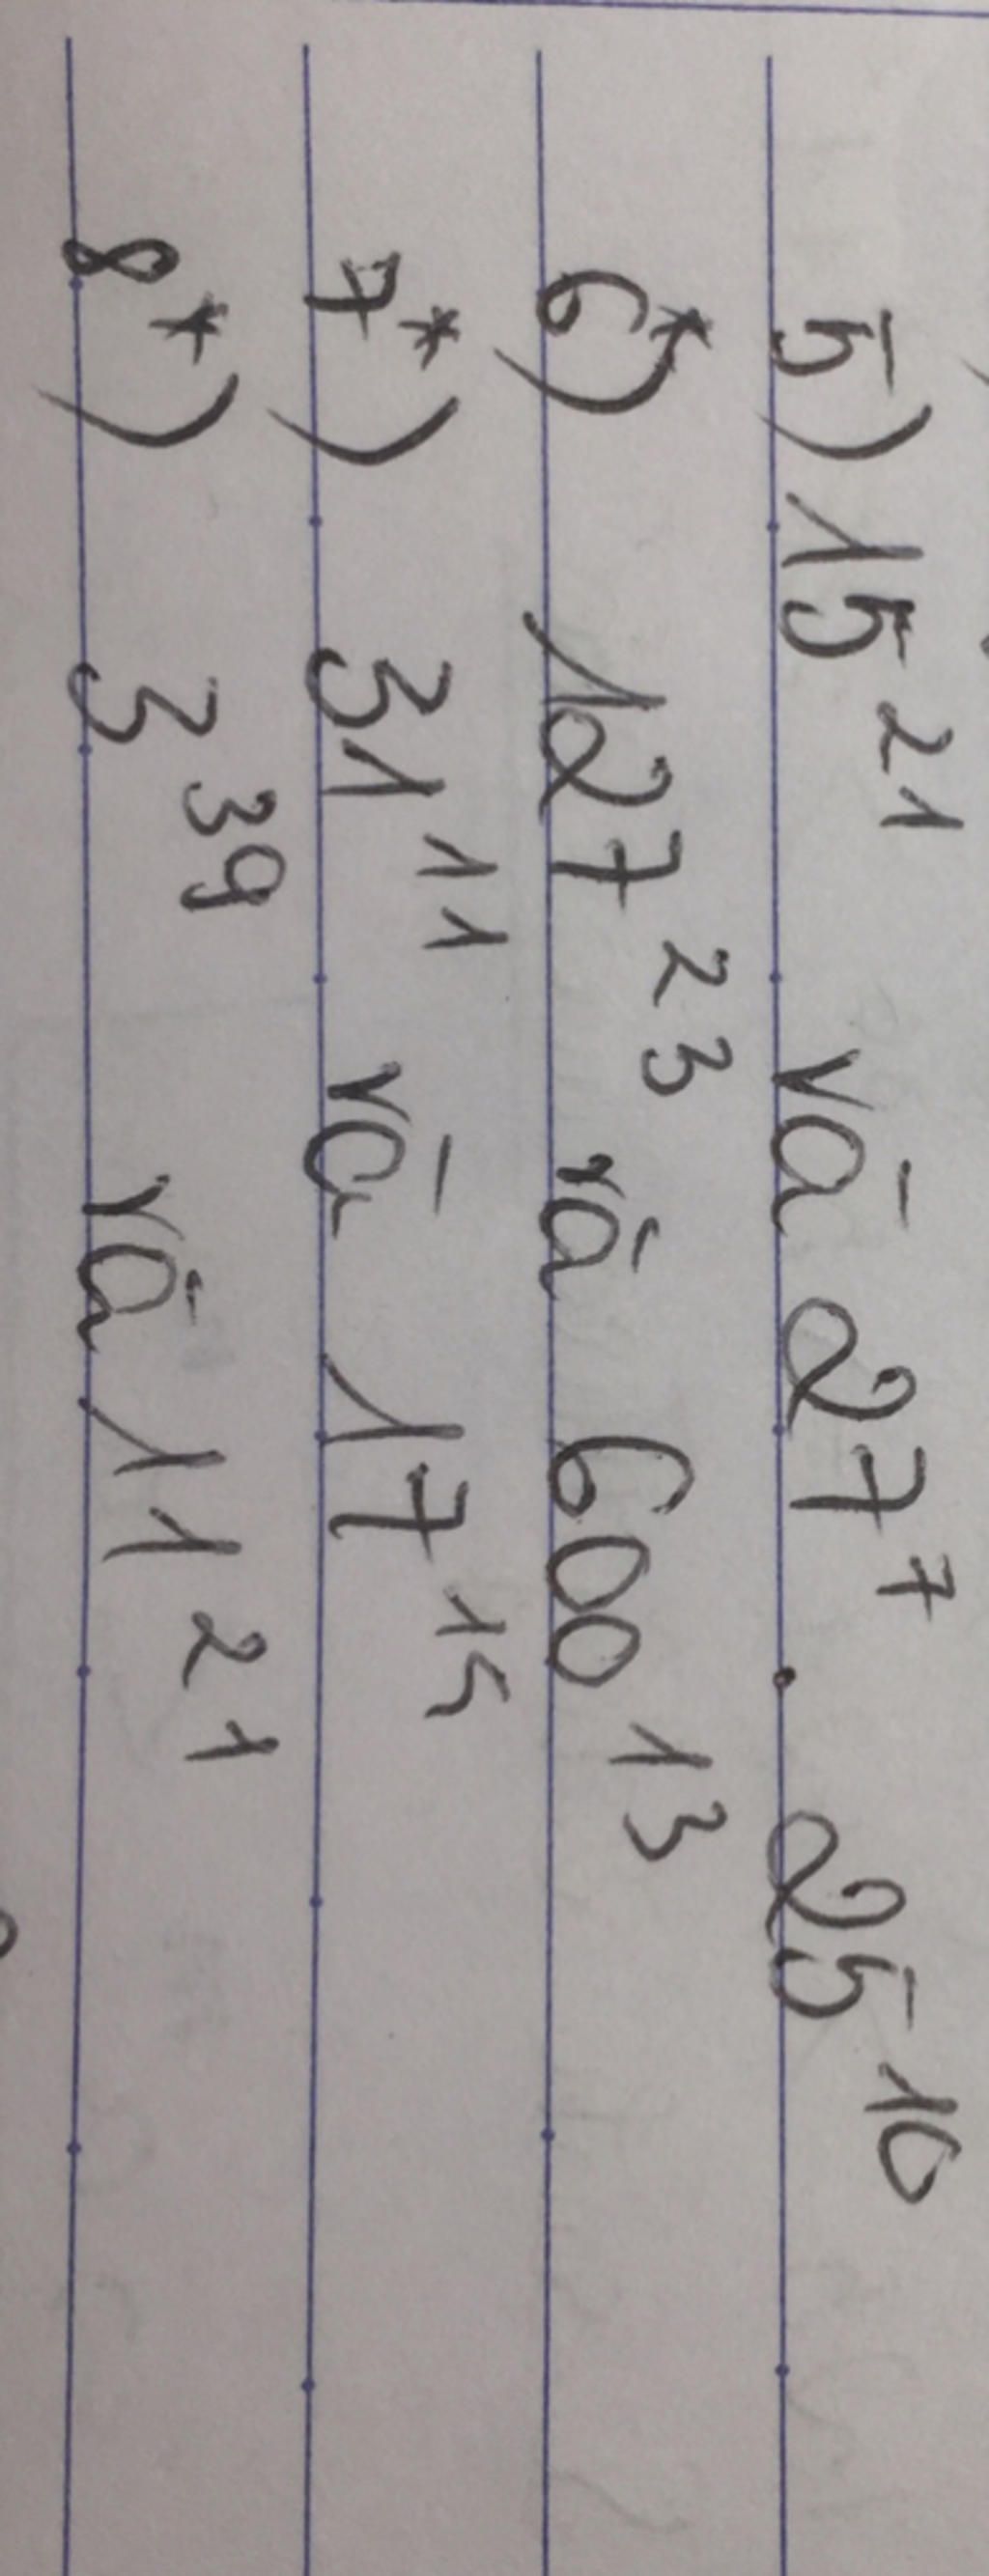 5) 15²¹ và 27⁷ . 25¹⁰
6*) 127²³ và 600¹³
7*) 31¹¹ và 17¹⁵
8*) 3³⁹ và 11²¹